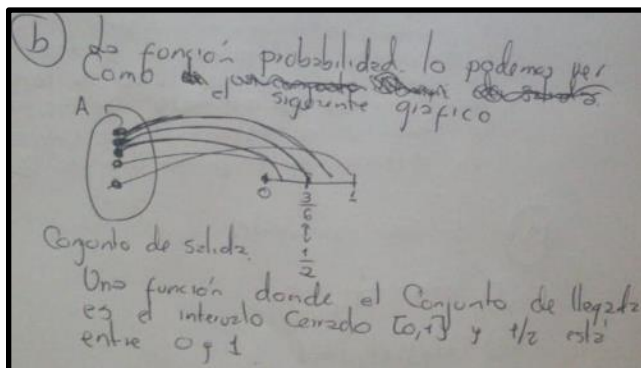 b
La función probabilidad lo podemos ver
Como
el siguiente gráfico
A
0 3/6 1
1/2
Conjunto de salida.
Una función donde el Conjunto de llegada
es el intervalo Cerrado [0,1] y 1/2 está
entre 0 y 1